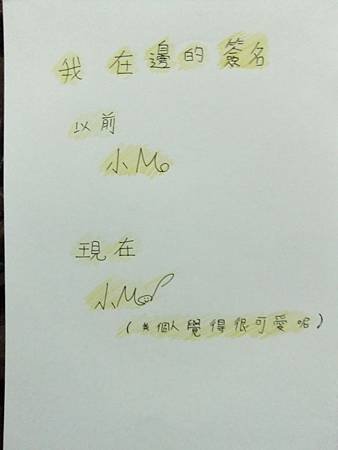 我在邊的簽名
以前
小Mo
現在
小Mo
(個人覺得很可愛呢)